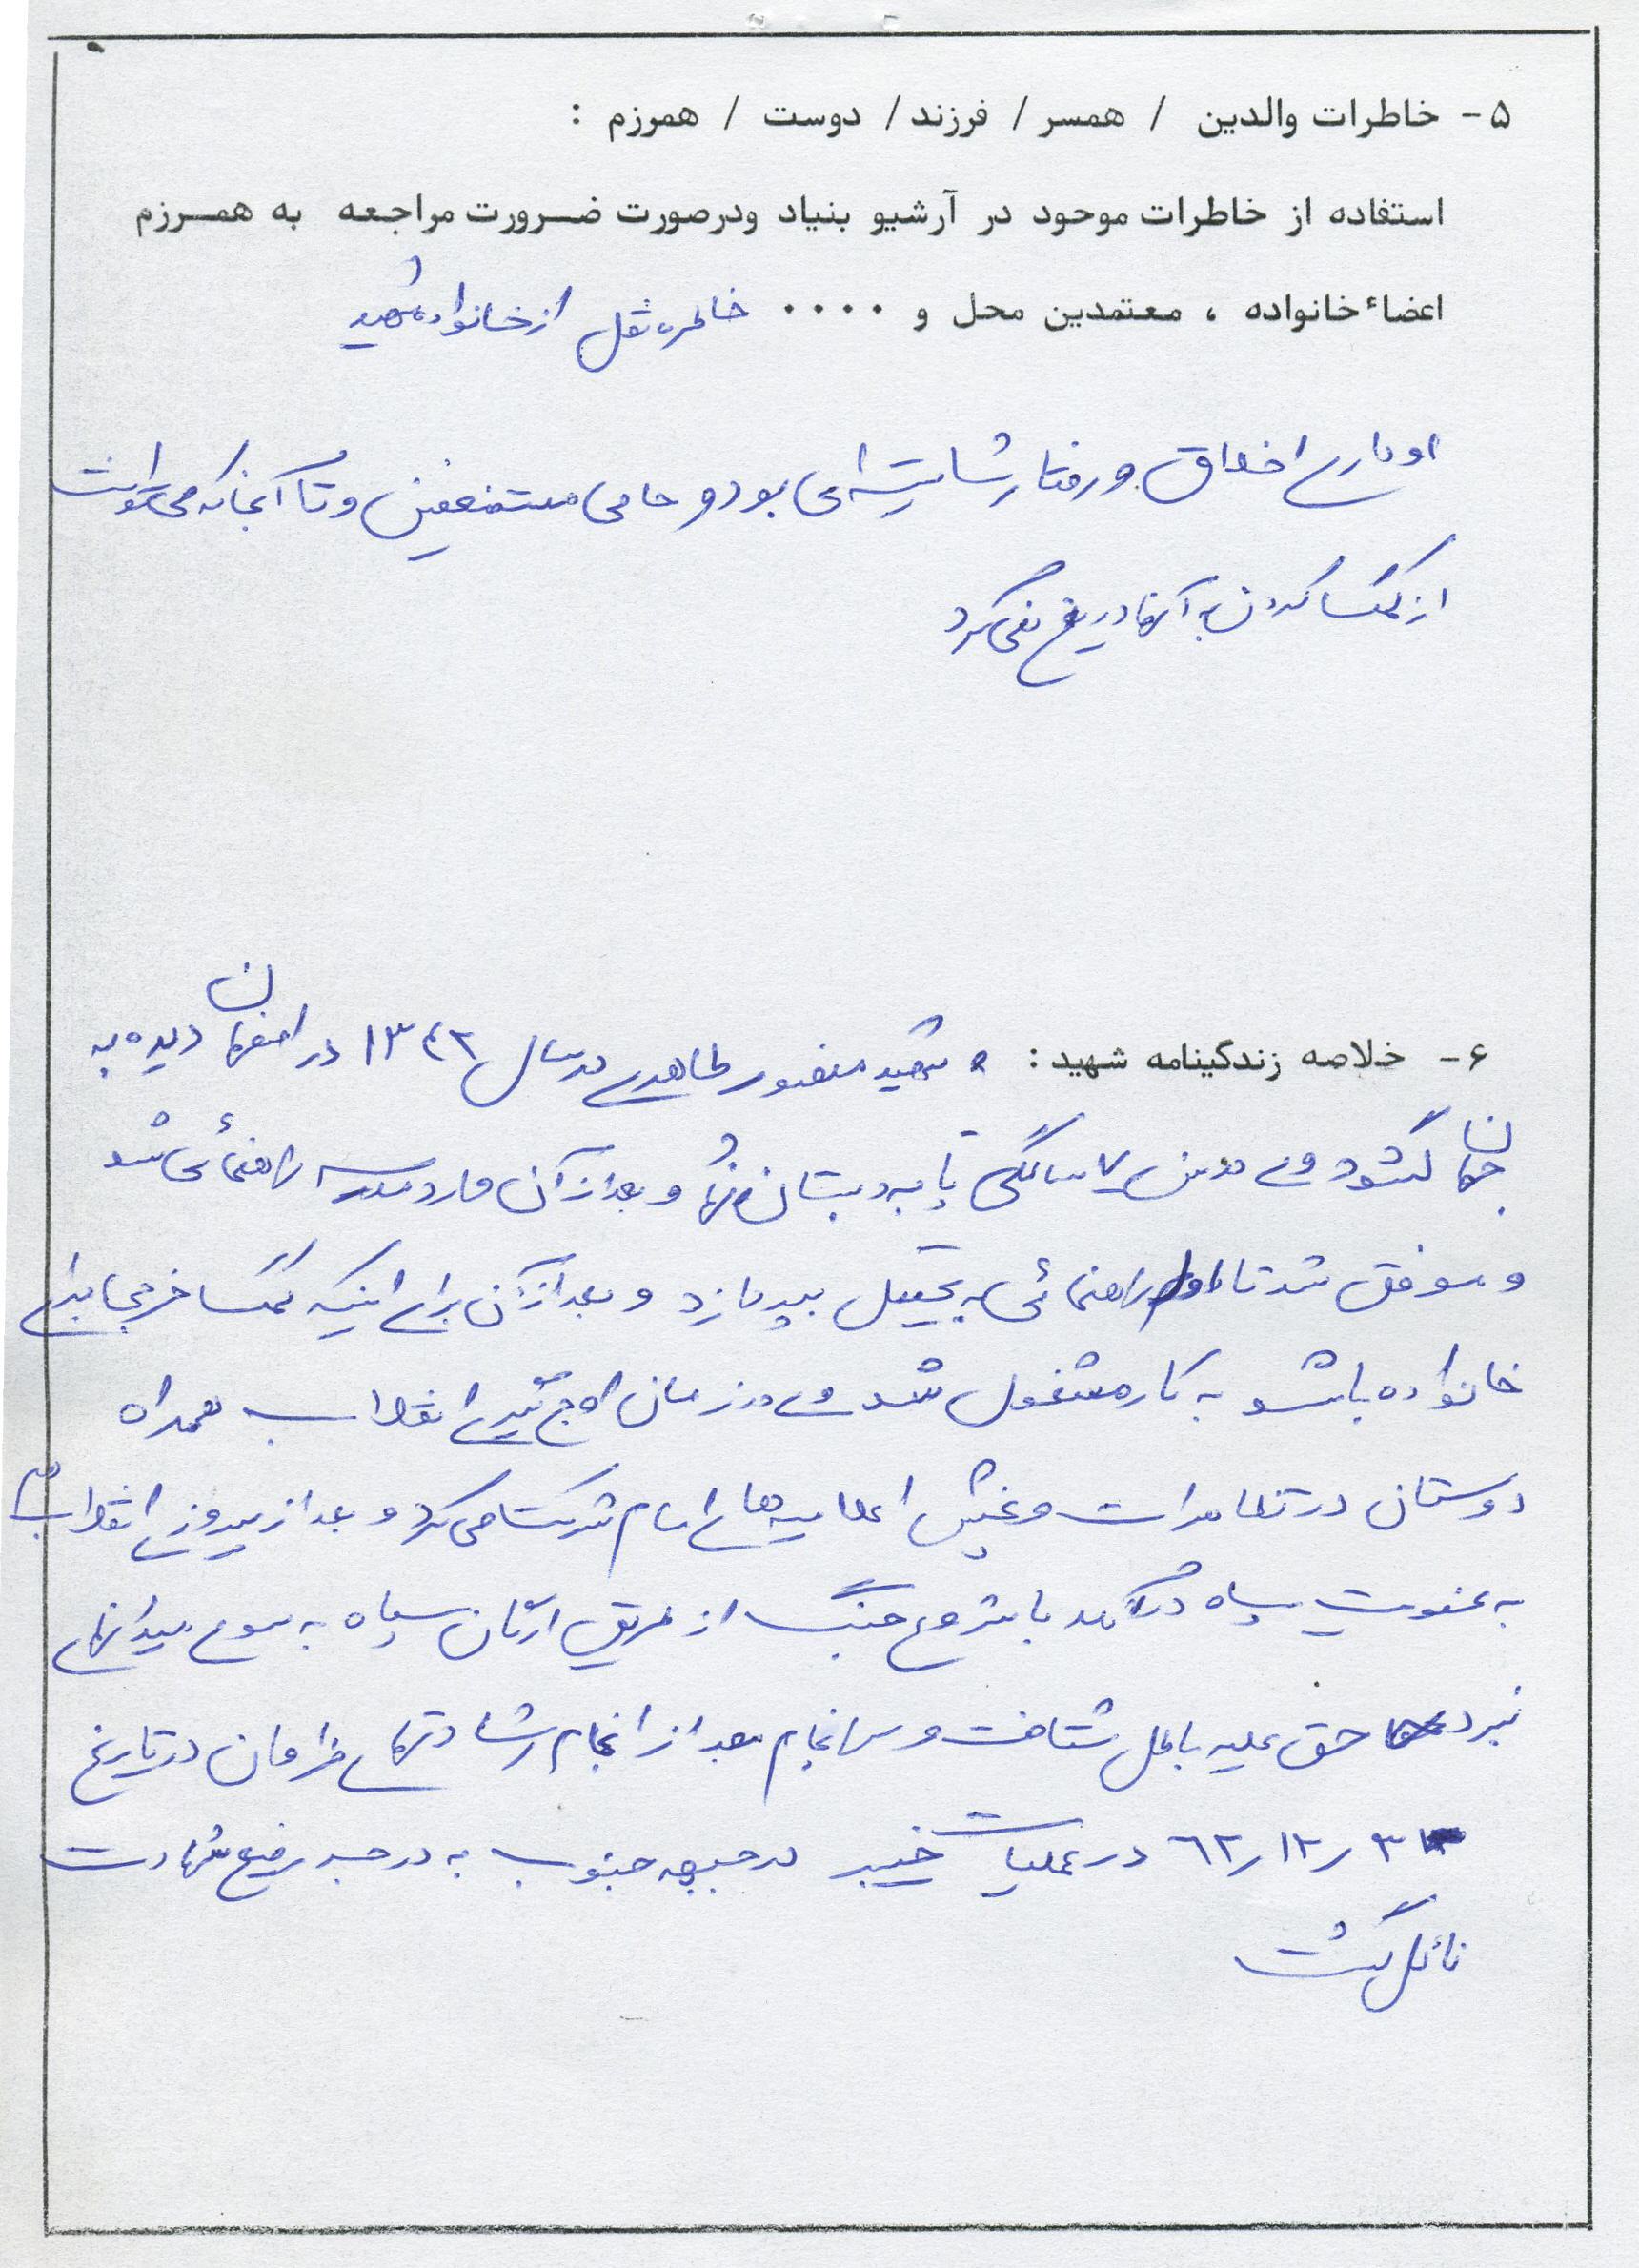 ۵- خاطرات والدین / همسر / فرزند / دوست / همرزم :
استفاده از خاطرات موحود در آرشیو بنیاد ودرصورت ضرورت مراجعه به همرزم
اعضاء خانواده ، معتمدین محل و .... خاطره نقل از خانواده شهید
او دارای اخلاق و رفتار شایسته ای بود و حامی مستضعفین و تا آنجا که می توانست
از کمک کردن به آنها دریغ نمی کرد
۶- خلاصه زندگینامه شهید : شهید منصور طاهری در سال ۱۳۴۲ در اصفهان دیده به
جهان گشود وی در سن ۷ سالگی پا به دبستان نهاد و بعد از آن وارد مدرسه راهنمائی شد
و موفق شد تا اول راهنمائی به تحصیل بپردازد و بعد از آن برای اینکه کمک خرجی برای
خانواده باشد به کار مشغول شد وی در زمان اوج گیری انقلاب همراه
دوستان در تظاهرات و پخش اعلامیه های امام شرکت می کرد و بعد از پیروزی انقلاب
به عضویت سپاه درآمد با شروع جنگ از طریق ارگان سپاه به سوی میدانهای
نبرد حق علیه باطل شتافت و سرانجام بعد از انجام رشادتهای فراوان در تاریخ
۶۲/۱۲/۳ در عملیات خیبر در جبهه جنوب به درجه رفیع شهادت
نائل گشت